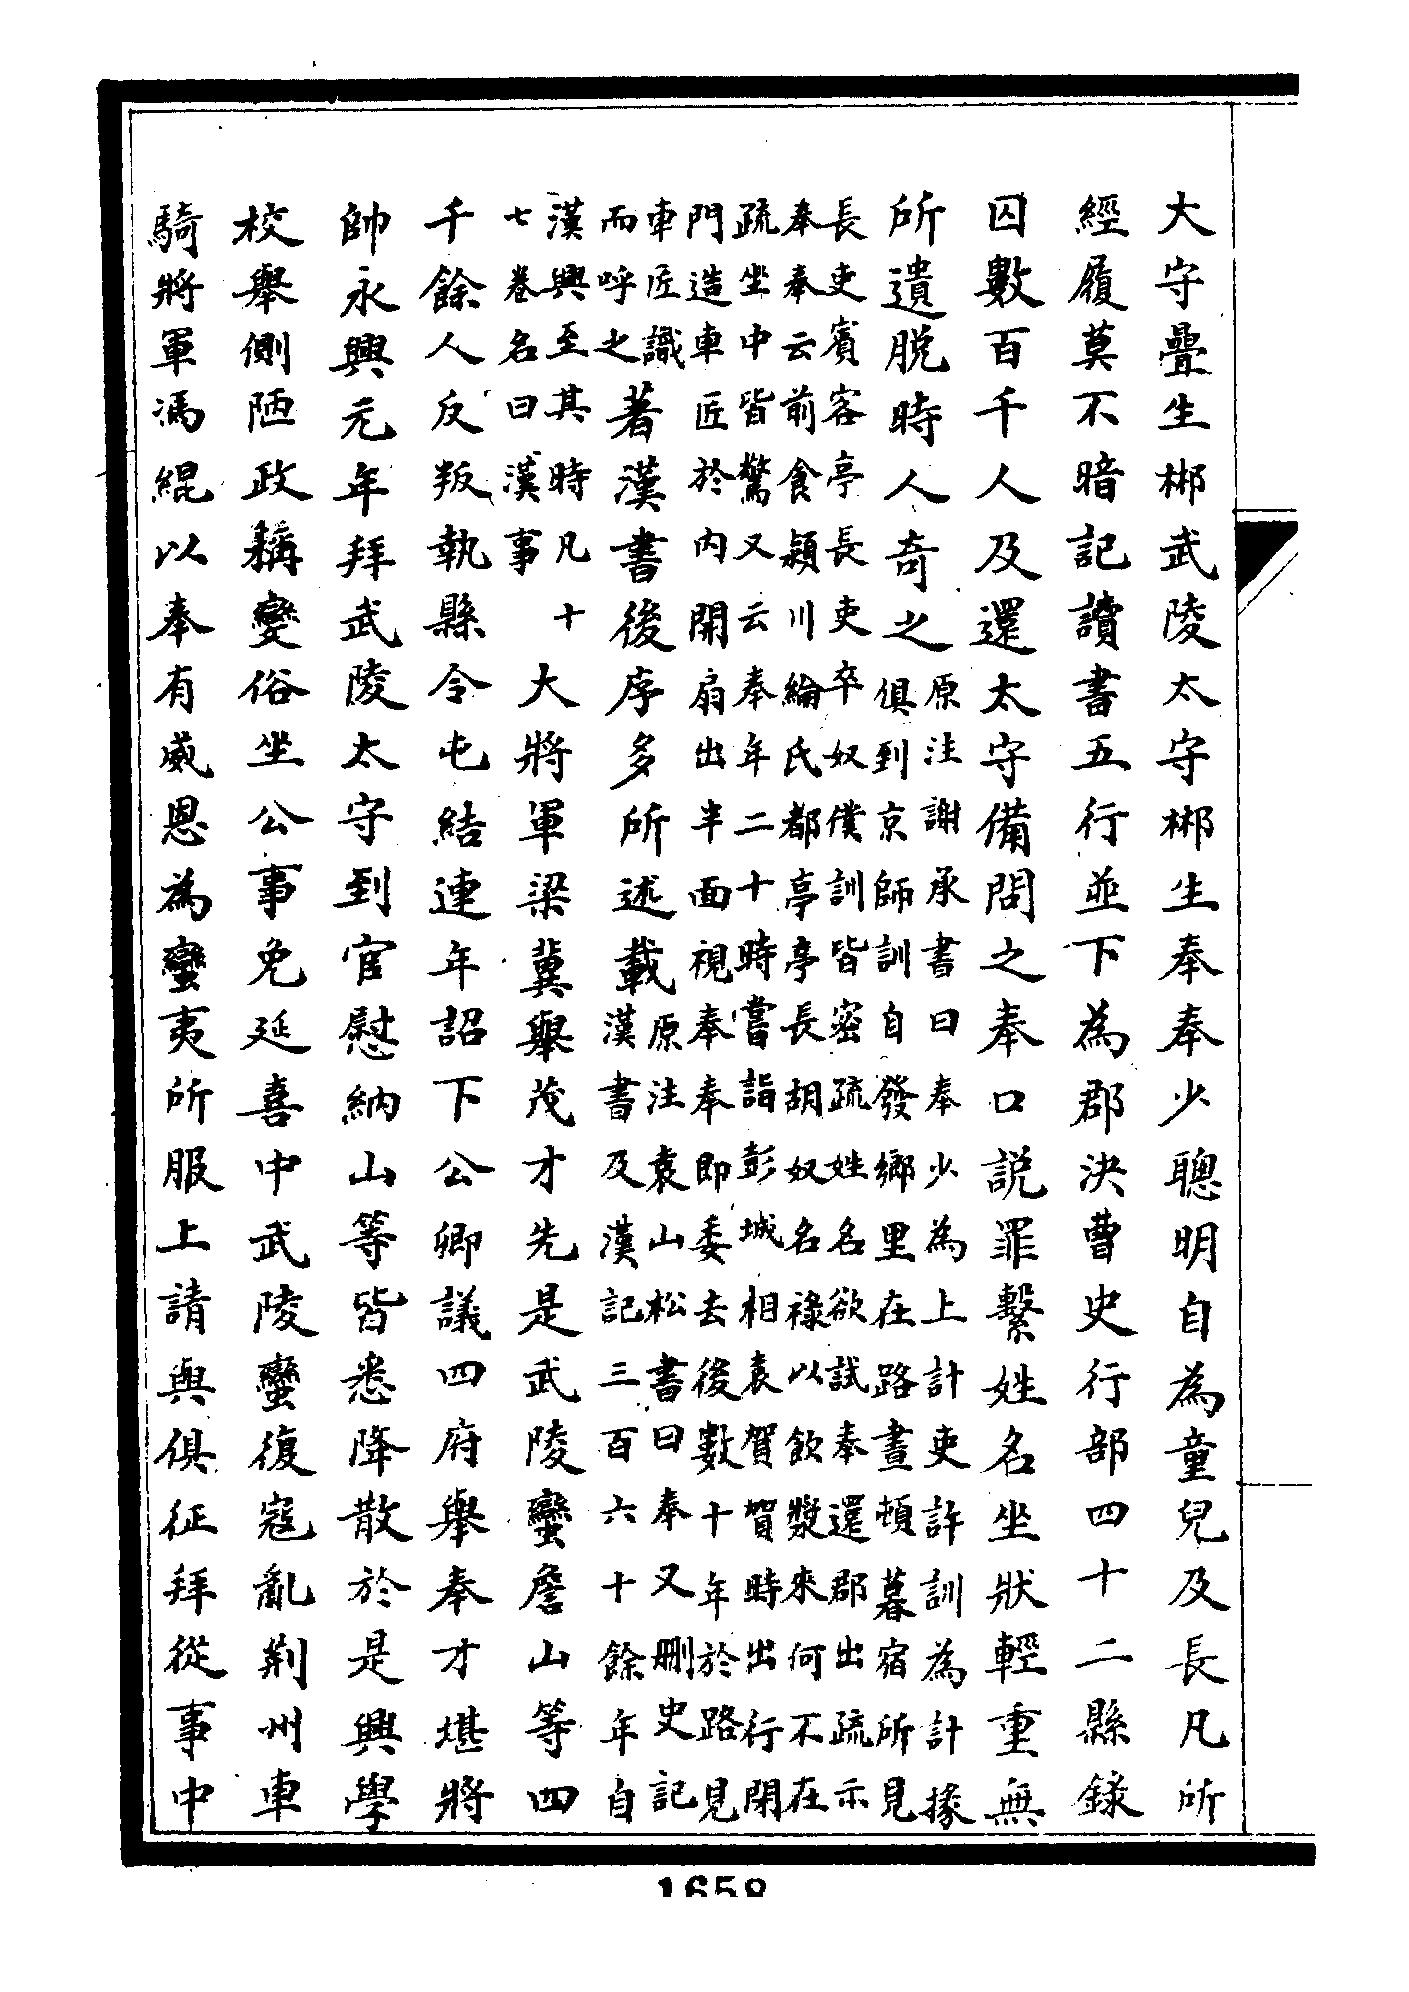 大守疊生郴武陵太守郴生奉奉少聰明自為童兒及長凡所
經履莫不暗記讀書五行並下為郡決曹史行部四十二縣錄
囚數百千人及還太守備問之奉口說罪繫姓名坐狀輕重無
所遺脫時人奇之
原注謝承書曰奉少為上計吏許訓為計掾
俱到京師訓自發鄉里在路晝頓暮宿所見
長吏賓客亭長吏卒奴僕訓皆密疏姓名欲試奉還郡出疏示
奉奉云前食潁川綸氏都亭亭長胡奴名祿以飲漿來何不在
疏坐中皆驚又云奉年二十時嘗詣彭城相袁賀賀時出行閉
門造車匠於內開扇出半面視奉奉即委去後數十年於路見
車匠識
而呼之
著漢書後序多所述載
原注袁山松書曰奉又刪史記
漢書及漢記三百六十餘年自
漢興至其時凡十
七卷名曰漢事
大將軍梁冀舉茂才先是武陵蠻詹山等四
千餘人反叛執縣令屯結連年詔下公卿議四府舉奉才堪將
帥永興元年拜武陵太守到官慰納山等皆悉降散於是興學
校舉側陋政稱變俗坐公事免延喜中武陵蠻復寇亂荆州車
騎將軍馮緄以奉有威恩為蠻夷所服上請與俱征拜從事中
1658